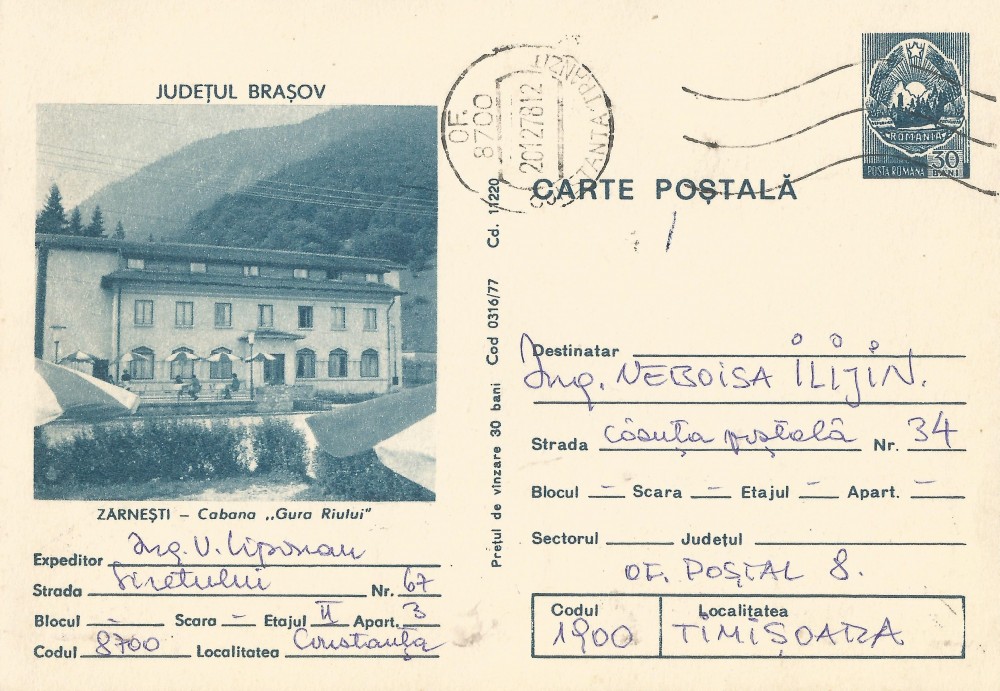 JUDEȚUL BRAȘOV
ZĂRNEȘTI – Cabana „Gura Rîului"
Expeditor Ing. V. Lipovan
Strada Siretului Nr. 67
Blocul – Scara – Etajul II Apart. 3
Codul 8700 Localitatea Constanța
Prețul de vînzare 30 bani Cod 0316/77 Cd. 11220
OF. 8700
CONSTANȚA TRANZIT
20127812
ROMÂNIA
POSTA ROMANA 30 BANI
CARTE POȘTALĂ
Destinatar
Ing. NEBOISA ILIJIN.
Strada Căsuța poștală Nr. 34
Blocul – Scara – Etajul – Apart. –
Sectorul Județul
OF. POȘTAL 8.
Codul Localitatea
1900 TIMIȘOARA